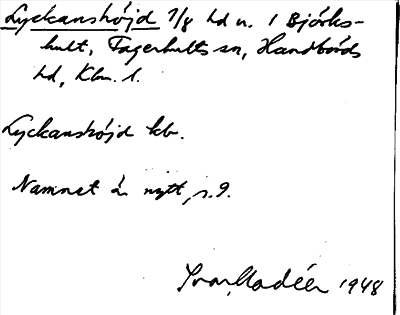 Lyckanshöjd 1/8 hd u. 1 Björks-
hult, Fagerhults sn, Handbörds
hd, Klm. l.
Lyckanshöjd kb.
Namnet är nytt, s.9.
Ivar Modéer 1948